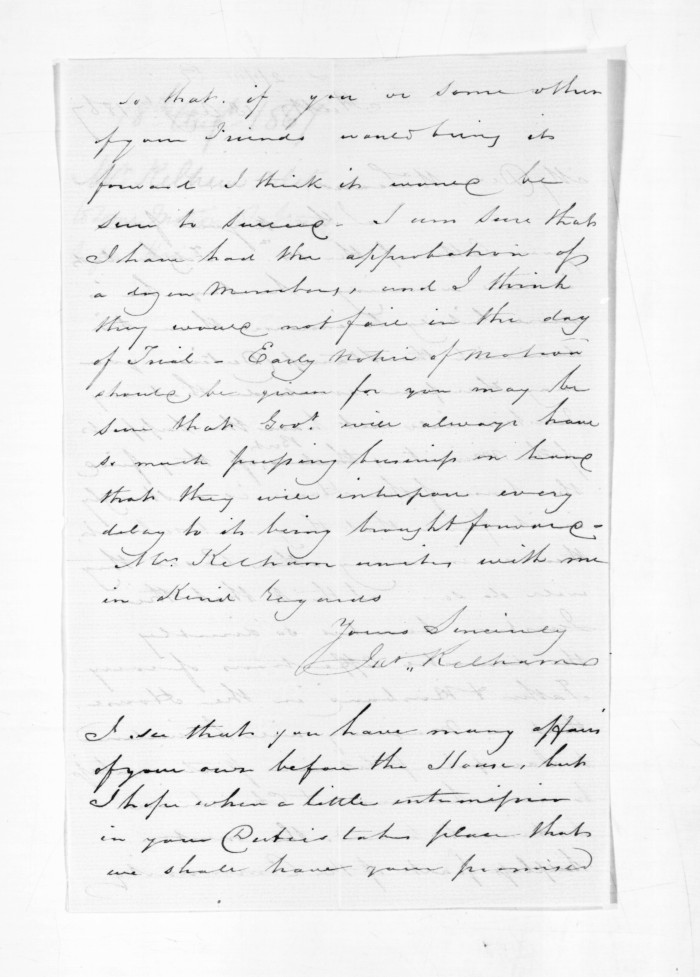 so that if you or some other
of your Friends would bring it
forward I think it would be
sure to succeed - I am sure that
I have had the approbation of
a dozen Members, and I think
they would not fail in the day
of Trial - Early Notice of Motion
should be given for you may be
sure that Govt. will always have
so much pressing business in hand
that they will interpose every
delay to its being brought forward -
Mrs. Kelham unites with me
in Kind regards
Yours Sincerely
Jas. Kelham
I see that you have many affairs
of your own before the House, but
I hope when a little intermission
in your Duties takes place that
we shall have your promised